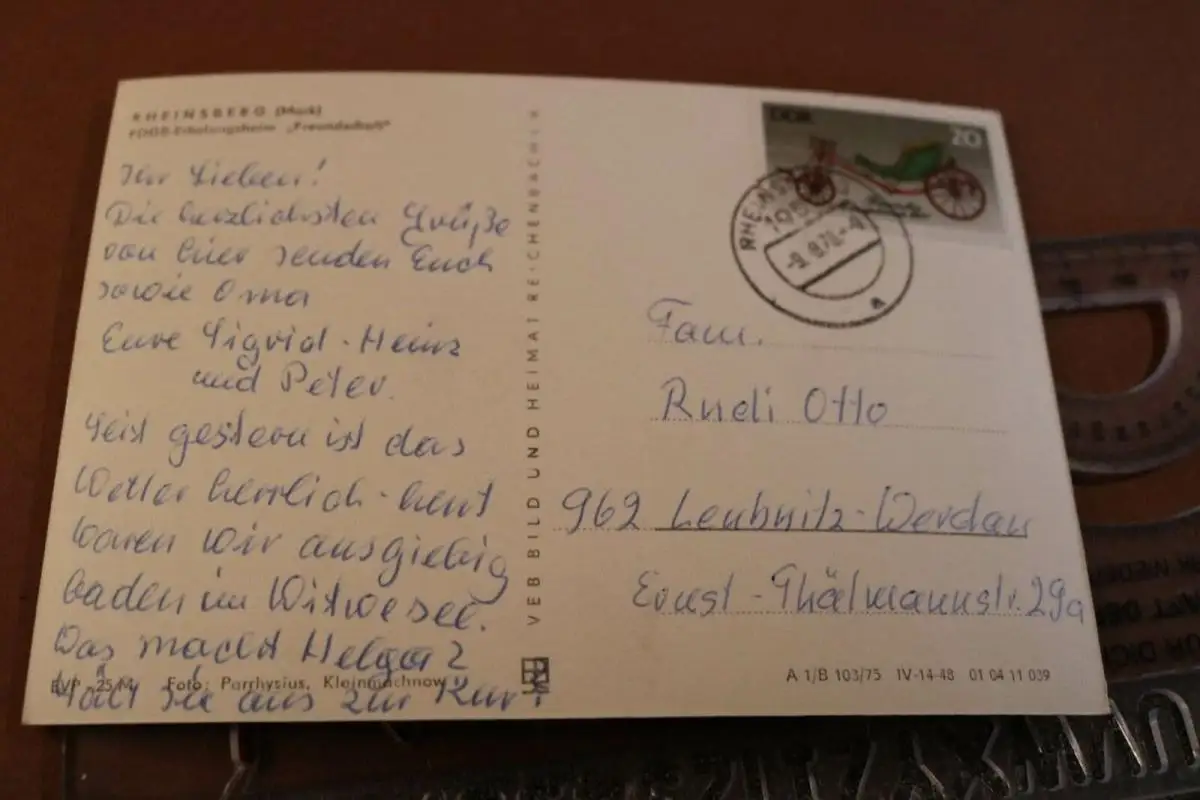 RHEINSBERG (Mark)
FDGB-Erholungsheim „Freundschaft"
Ihr Lieben!
Die herzlichsten Grüße
von hier senden Euch
sowie Oma
Eure Sigrid - Heinz
und Peter.
Seit gestern ist das
Wetter herrlich - heut
waren wir ausgiebig
baden im Wittwesee.
Was macht Helga?
Hält sie aus zur Kur?
EVP 25 M Foto: Parrhysius, Kleinmachnow
VEB BILD UND HEIMAT REICHENBACH i. V.
DDR
20
RHEINSBERG
195
-9.8.78-
a
Fam.
Rudi Otto
962 Leubnitz-Werdau
Ernst-Thälmannstr. 29a
A 1/B 103/75 IV-14-48 01 04 11 039